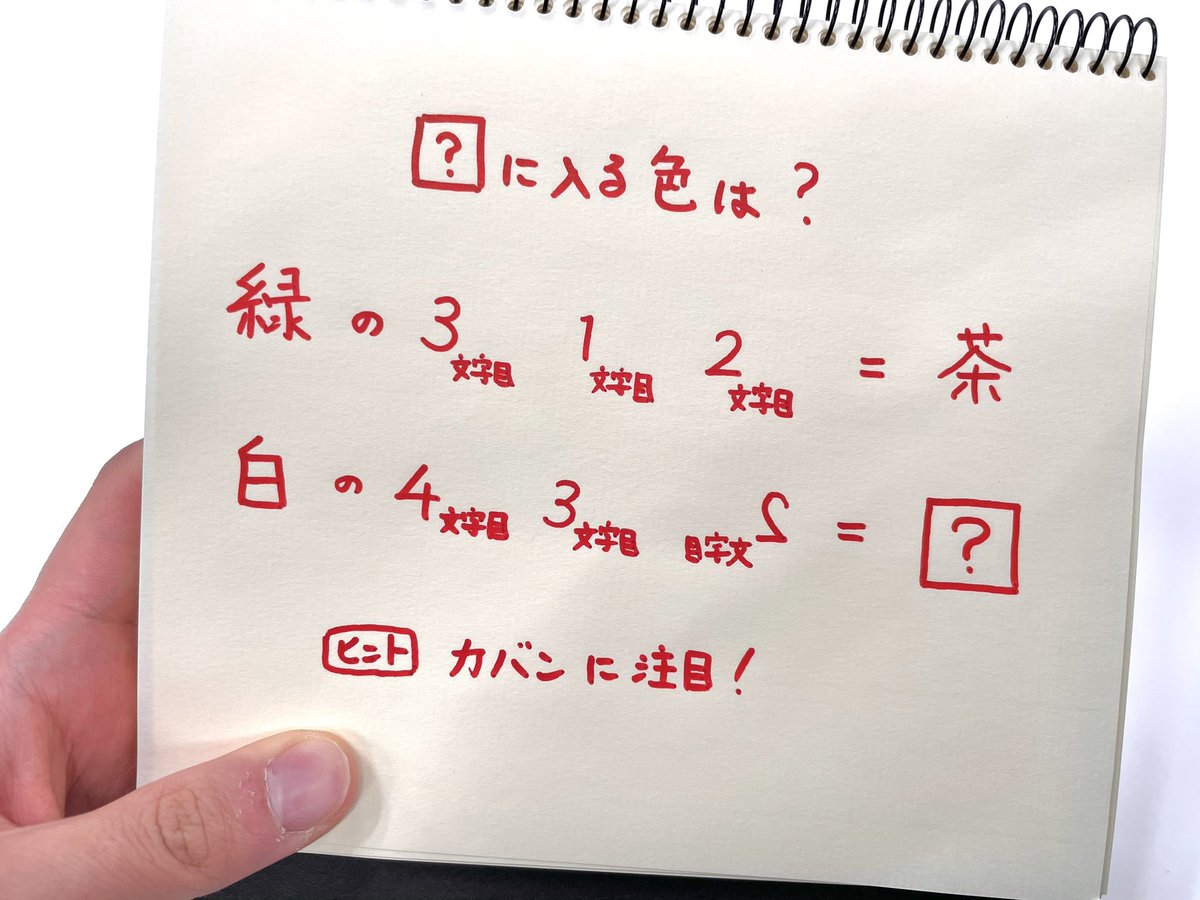 ?に入る色は?
緑の3文字目 1文字目 2文字目 = 茶
白の4文字目 3文字目 2文字目 = ?
ヒント カバンに注目!